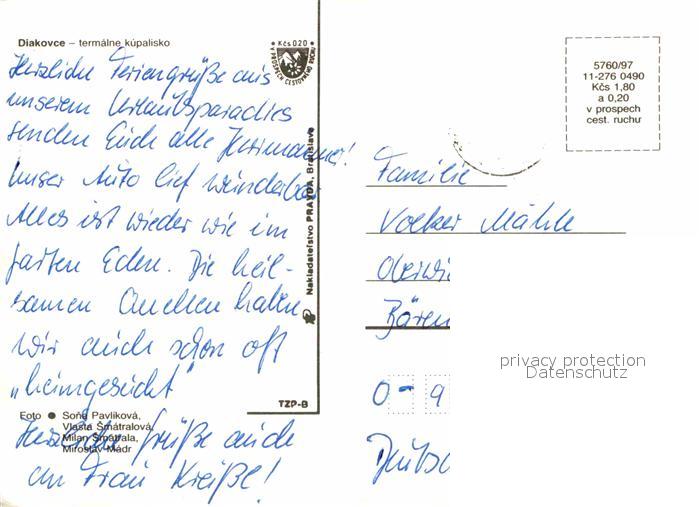 Diakovce – termálne kúpalisko
★ Kčs 0,20 ★
V PROSPECH CESTOVNÉHO RUCHU
Herzliche Feriengrüße aus
unserem Urlaubsparadies
senden Euch alle
unser Auto lief wunderbar
Alles ist wieder wie im
Garten Eden. Die heil-
samen Quellen haben
wir auch schon oft
„heimgesucht"
Herzliche Grüße auch
an Frau Kreiße!
Foto ● Soňa Pavlíková,
Vlasta Šmátralová,
Milan Šmátrala,
Miroslav Mádr
Nakladateľstvo PRAVDA, Bratislava
TZP-B
5760/97
11-276 0490
Kčs 1,80
a 0,20
v prospech
cest. ruchu
Familie
Volker Mähle
Oberwi
Bären
0 - 9
privacy protection
Datenschutz